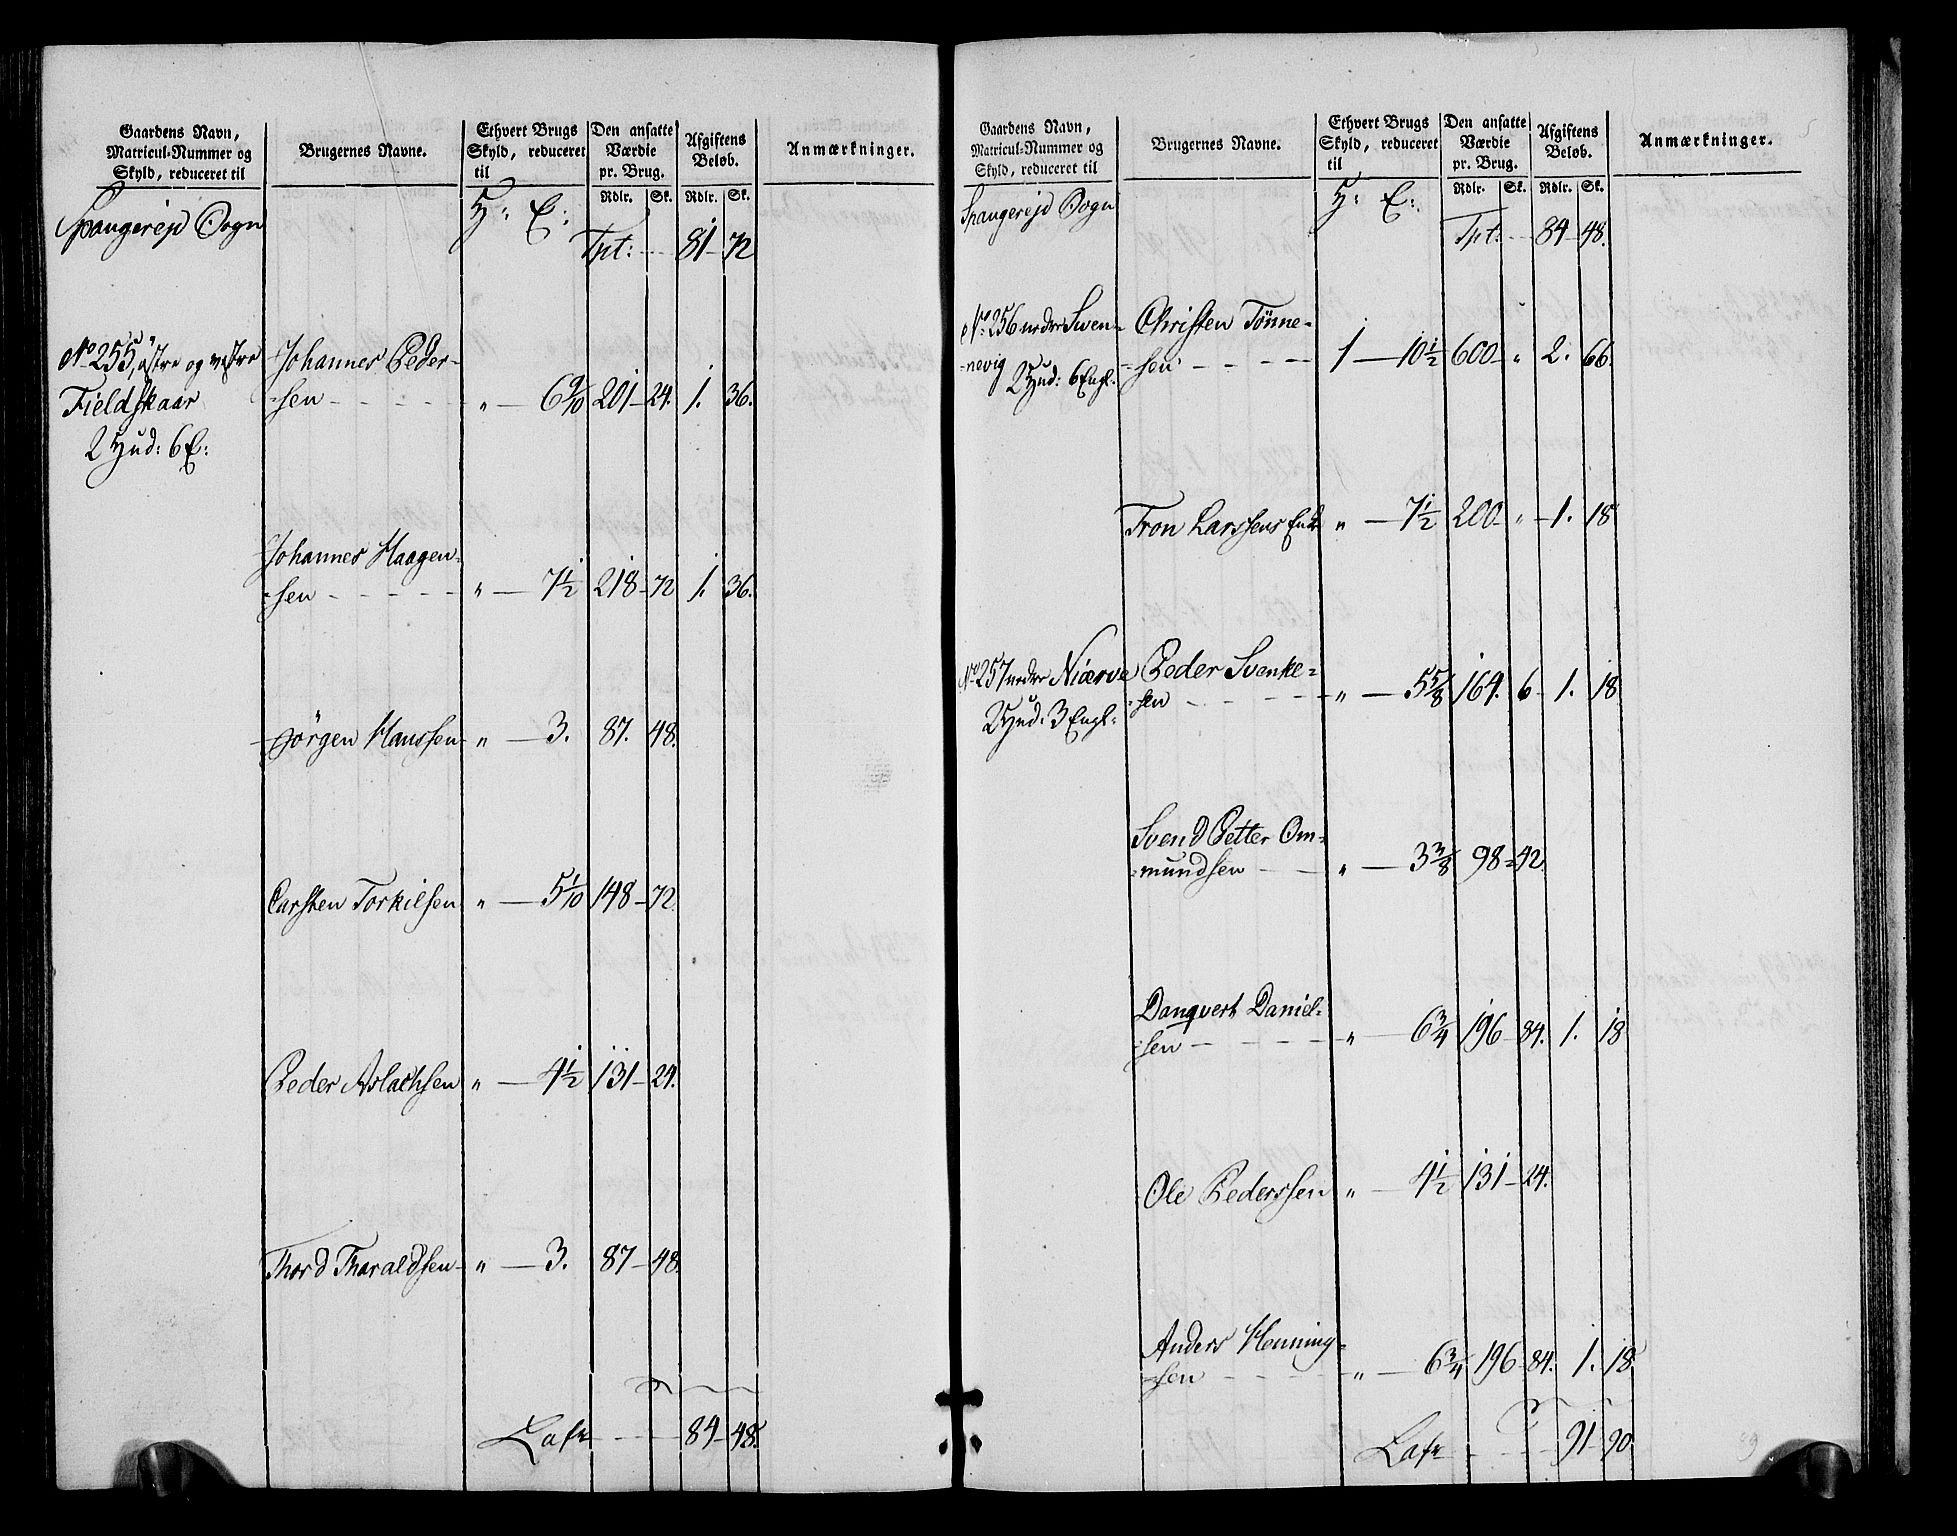 Gaardens Navn, Matricul-Nummer og Skyld, reduceret til | Brugernes Navne. | Ethvert Brugs Skyld, reduceret til | Den ansatte Værdie pr. Brug. | Afgiftens Beløb. | Anmærkninger.
Rdlr. | Sk. | Rdlr. | Sk.
Spangerejd Sogn | H: E:
Tpt: 81 - 72
No 255, östre og vestre | Johannes Peder-
Fieldskaar | -sen - - - - - " - 6 9/10 | 201 - 24. | 1. 36.
2 Hud: 6 E:
Johannes Haagen-
-sen - - - - - " - 7 1/2 | 218 - 72 | 1. 36.
Jörgen Hanssen - " - 3. | 87. 48.
Carsten Torkilsen " - 5 1/10 | 148 - 72.
Peder Aslachsen " - 4 1/2 | 131 - 24.
Thord Tharaldsen - " - 3. | 87 - 48.
Lat - - - 84 - 48.
Gaardens Navn, Matricul-Nummer og Skyld, reduceret til | Brugernes Navne. | Ethvert Brugs Skyld, reduceret til | Den ansatte Værdie pr. Brug. | Afgiftens Beløb. | Anmærkninger.
Rdlr. | Sk. | Rdlr. | Sk.
Spangerejd Sogn | H: E:
Tpt: - - 84 - 48.
No 256 nedre Swen- | Christen Tönne-
-nevig | -sen - - - - 1 - 10 1/2 | 600 - " | 2. 66.
2 Hud: 6 Engl.
Tron Larssens Enke " - 7 1/2 | 200 - " - 1. 18
No 257 nedre Niærve | Peder Svenke-
2 Hud: 3 Engl: | -sen - - - - " - 5 5/8 | 164. 6 - 1. 18
Svend Petter Om-
-mundsen - - - " - 3 3/8 | 98 - 42.
Danqvert Daniel-
-sen - - - - - " - 6 3/4 | 196 - 84. | 1. 18
Ole Pederssen " - 4 1/2 | 131 - 24.
Anders Henning-
-sen - - - - - " - 6 3/4 | 196 - 84. | 1. 18.
Lat - - - 91 - 90.
89